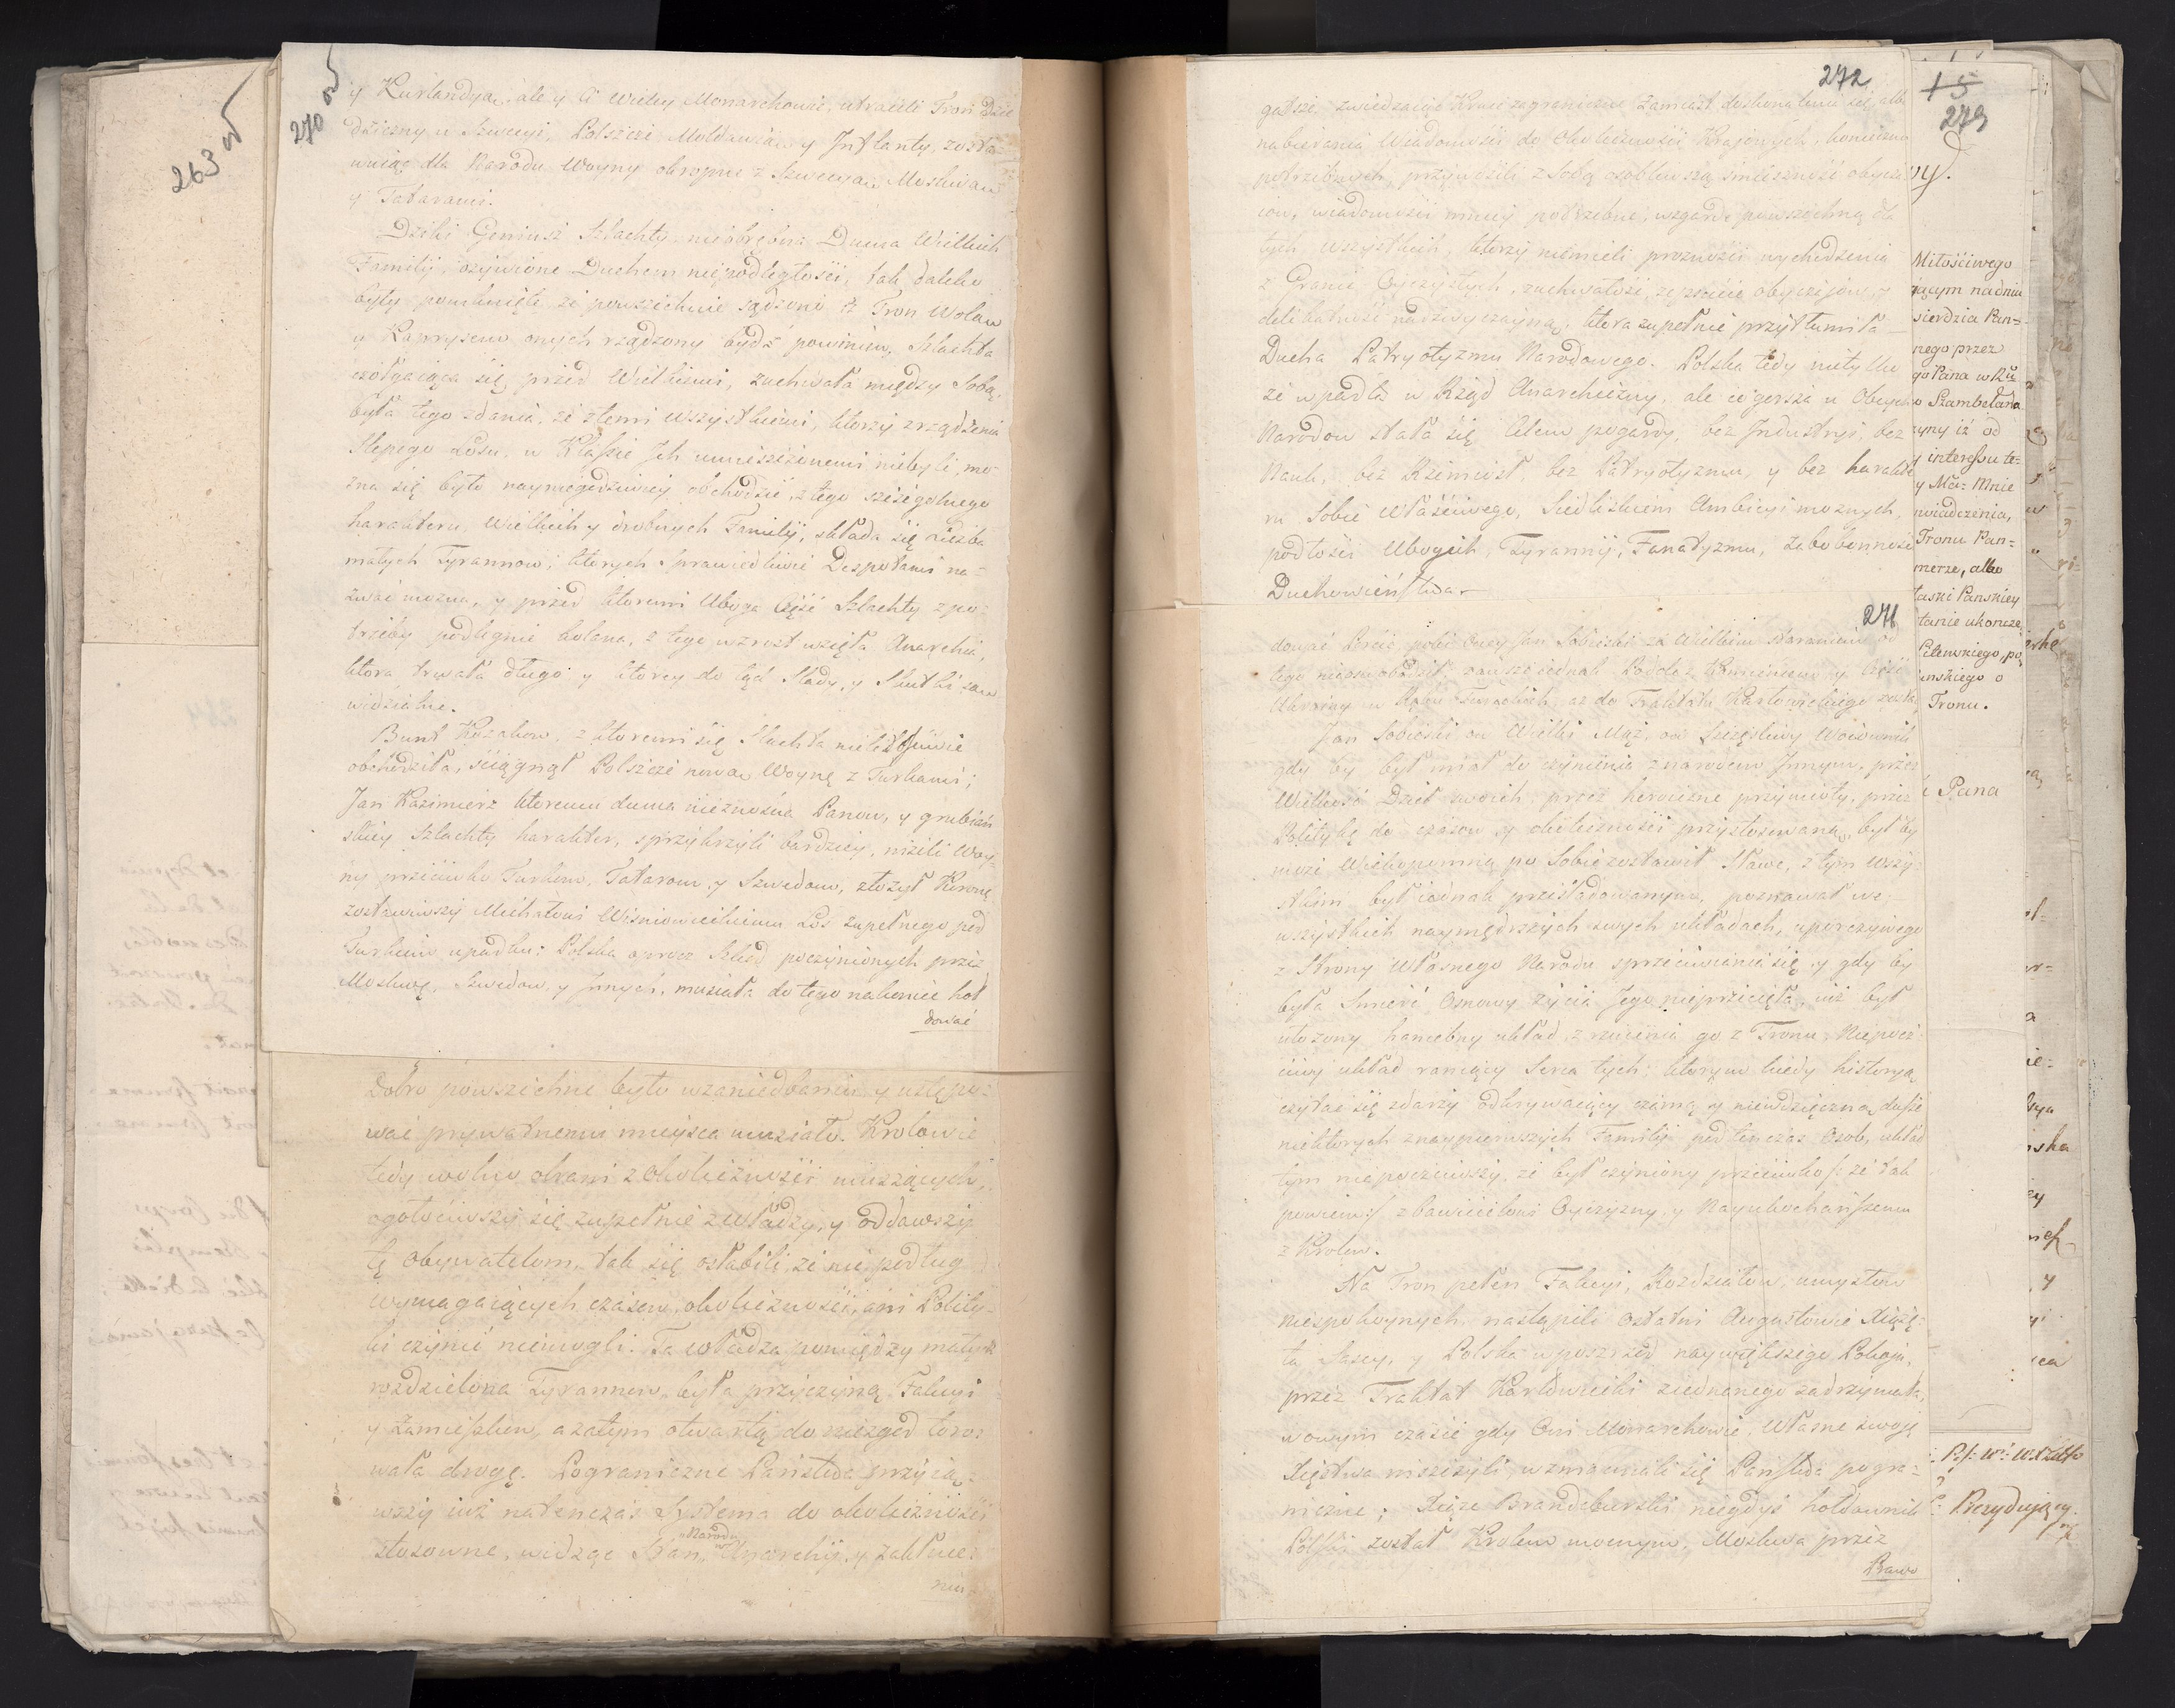 263
270
y Kurlandya, ale y Ci Wielcy Monarchowie, utracili Tron Dzie
dziczny w Szwecyi, Polszcze Moldawią y Inflanty, zosta
wuiąc dla Narodu Woyny okropne z Szwecyą Moskwą
y Tatarami.
Dziki Geniusz Szlachty, Duma Wielkich
Familij, ożywione Duchem niepodległości, tak daleko
były pomknięte, że powszechnie sądzono iż Tron Wolą
y Kapryсem onych rządzony bydź powinien, Szlachta
czołgaiąca się przed Wielkiemi, zuchwała między Sobą,
była tego zdania, że z temi wszystkiemi, ktorzy zrządzenia
slepego Losu, w Klassie Ich umieszczonemi niebyli, mo-
żna się było naymegodziwiey obchodzić, z tego szczegolnego
harakteru, Wielkich y drobnych Familij, składa się liczba
małych Tyrannow, ktorych sprawiedliwie Despotami na-
zwać można, y przed ktoremi Uboga Część Szlachty z po-
trzeby podległe kolana, z tego wzrost wzięła Anarchia,
ktora trwała długo y ktorey do tąd Slady, y Skutki są
widzialne.
Bunt Kozakow, z ktoremi się Slachta nielitosciwie
obchodziła, sciągnął Polszcze nową Woynę z Turkami;
Jan Kazimierz ktoremu duma nieznośna Panow, y grubiań
skiey Szlachty harakter, sprzykrzyli bardziey, niżeli Woy-
ny przeciwko Turkom, Tatarom y Szwedom, złożył Koronę
zostawiwszy Michałowi Wisniowieckiemu Los zupełnego pod
Turkiem upadku: Polska oprocz Szkod poczynionych przez
Moskwę, Szwedow y Innych, musiała do tego nakoniec hoł
dować
Dobro powszechne było wzaniedbaniu y ustępo-
wać prywatnemu mieysca musiało. Krolowie
tedy wolno obrani z okoliczności
ogołociwszy się zupełnie z władzy, y oddawszy
tę obywatelom, tak się osłabili, że nic podług
wymagaiących czasow, okoliczności, ani Polity-
ki czynić niemogli. Ta władza pomiędzy małych
rozdzielona Tyrannow, była przyczyną Fakcyi
y Zamieszkow, a zatym otwartą do niezgod toro-
wała drogę. Pograniczne Państwa przyią-
wszy iuż natenczas Systema do okoliczności
stosowne, widząc Stan Narodu w Anarchij, y Zakłuce-
niu
272
gatsze, zwiedzaiąc Kraie zagraniczne zamiast doskonalenia się, albo
nabierania Wiadomości do okoliczności Kraiowych, koniecznie
potrzebnych, przywozili z Sobą osobliwszą smieszność obycza
iow, wiadomości mniey potrzebne, wzgardę powszechną dla
tych wszystkich, ktorzy niemieli prozności wychodzenia
z Granic Oyczystych, zuchwałość, zepsucie obyczaiow, y
delikatność nadzwyczayną, ktora zupełnie przytłumiła
Ducha Patryotyzmu Narodowego. Polska tedy nietylko
że wpadła w Rząd Anarchiczny, ale co gorsza u Obcych
Narodow stała się Celem pogardy, bez Industryi, bez
Nauk, bez Rzemiosł, bez Patryotyzmu, y bez harakte
ru Sobie Właściwego, Siedliskiem Ambicyi możnych,
podłości Ubogich, Tyrannij, Fanatyzmu, Zabobonności
Duchowieństwa.
271
dować Porcie, Jan Sobieski za Wielkim staraniem od
tego nieoswobodził, zawsze iednak Podole z Kamieńcem y Część
Ukrainy w Ręku Tureckich, aż do Traktatu Karłowickiego
Jan Sobieski ow Wielki Mąż, ow Szczęśliwy Woiownik
gdy by był miał do czynienia z narodem Innym, przez
Wielkość Dzieł swoich, przez heroiczne przymioty, przez
Politykę do czasow y okoliczności przystosowaną, był by
może Wiekopomną po Sobie zostawił Sławę, z tym Wszy-
stkim był iednak prześladowanym, poznawał we
wszystkich naymędrszych swych układach, uporczywego
z Strony Własnego Narodu sprzeciwiania się, y gdy by
była Smierć Osnowy życia Jego nieprzecięła, iuż był
ułożony haniebny układ, zrzucenia go z Tronu. Niepocz-
ciwy układ raniący Serca tych, ktorym kiedy historyą
czytać się zdarzy odkrywaiący czarną y niewdzięczną duszę
niektorych znaypierwszych Familij pod tenczas Osob, układ
tym niepoczciwszy, że był czyniony przeciwko /: że tak
powiem :/ zbawicielowi Oyczyzny, y Nayukochańszemu
z Krolow.
Na Tron pełen Fakcyi, Rozdziałow, umysłow
niespokoynych, nastąpili ostatni Augustowie Xiążę-
ta Sascy, y Polska wposrzod naywiększego Pokoju,
przez Traktat Karłowicki ziednanego zadrzymała,
w owym czasie gdy Ciż Monarchowie, Własne swoje
Xięstwa niszczyli, wzmacniali się Państwa pogra-
niczne; Xiąże Brandeburski niegdyś hołdownik
Polski został Krolem mocnym, Moskwa przez
Pano
15
273
Miłościwego
zącym nadniu
sierdzia Pan-
nego przez
go Pana w Ru
o Szambelana
zyny iż od
y interessu te-
y Ma: Mnie
swiadczenia,
Tronu Pan-
merze, albo
łaski Panskiey
tanie ukoncze
Pilewskiego, po
inskiego o
Tronu.
Pana
Prezyduiący